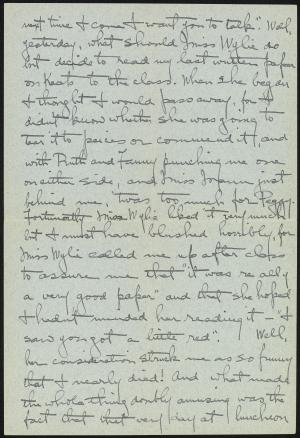 next time I come I want you to talk". Well,
yesterday, what should Miss Wylie do
but decide to read my last written paper
on Keats to the class. When she began
I thought I would pass away, for I
didn't know whether she was going to
tear it to pieces or commend it, and
with Ruth and Fanny punching me one
on either side, and Miss just
behind me, 'twas too much for Peggy.
Fortunately Miss Wylie liked it very much
but I must have blushed horribly, for
Miss Wylie called me up after class
to assure me that "it was really
a very good paper" and that she hoped
I hadn't minded her reading it - "I
saw you got a little red". Well,
her consideration struck me as so funny
that I nearly died! And what made
the whole thing doubly amusing was the
fact that that very day at luncheon